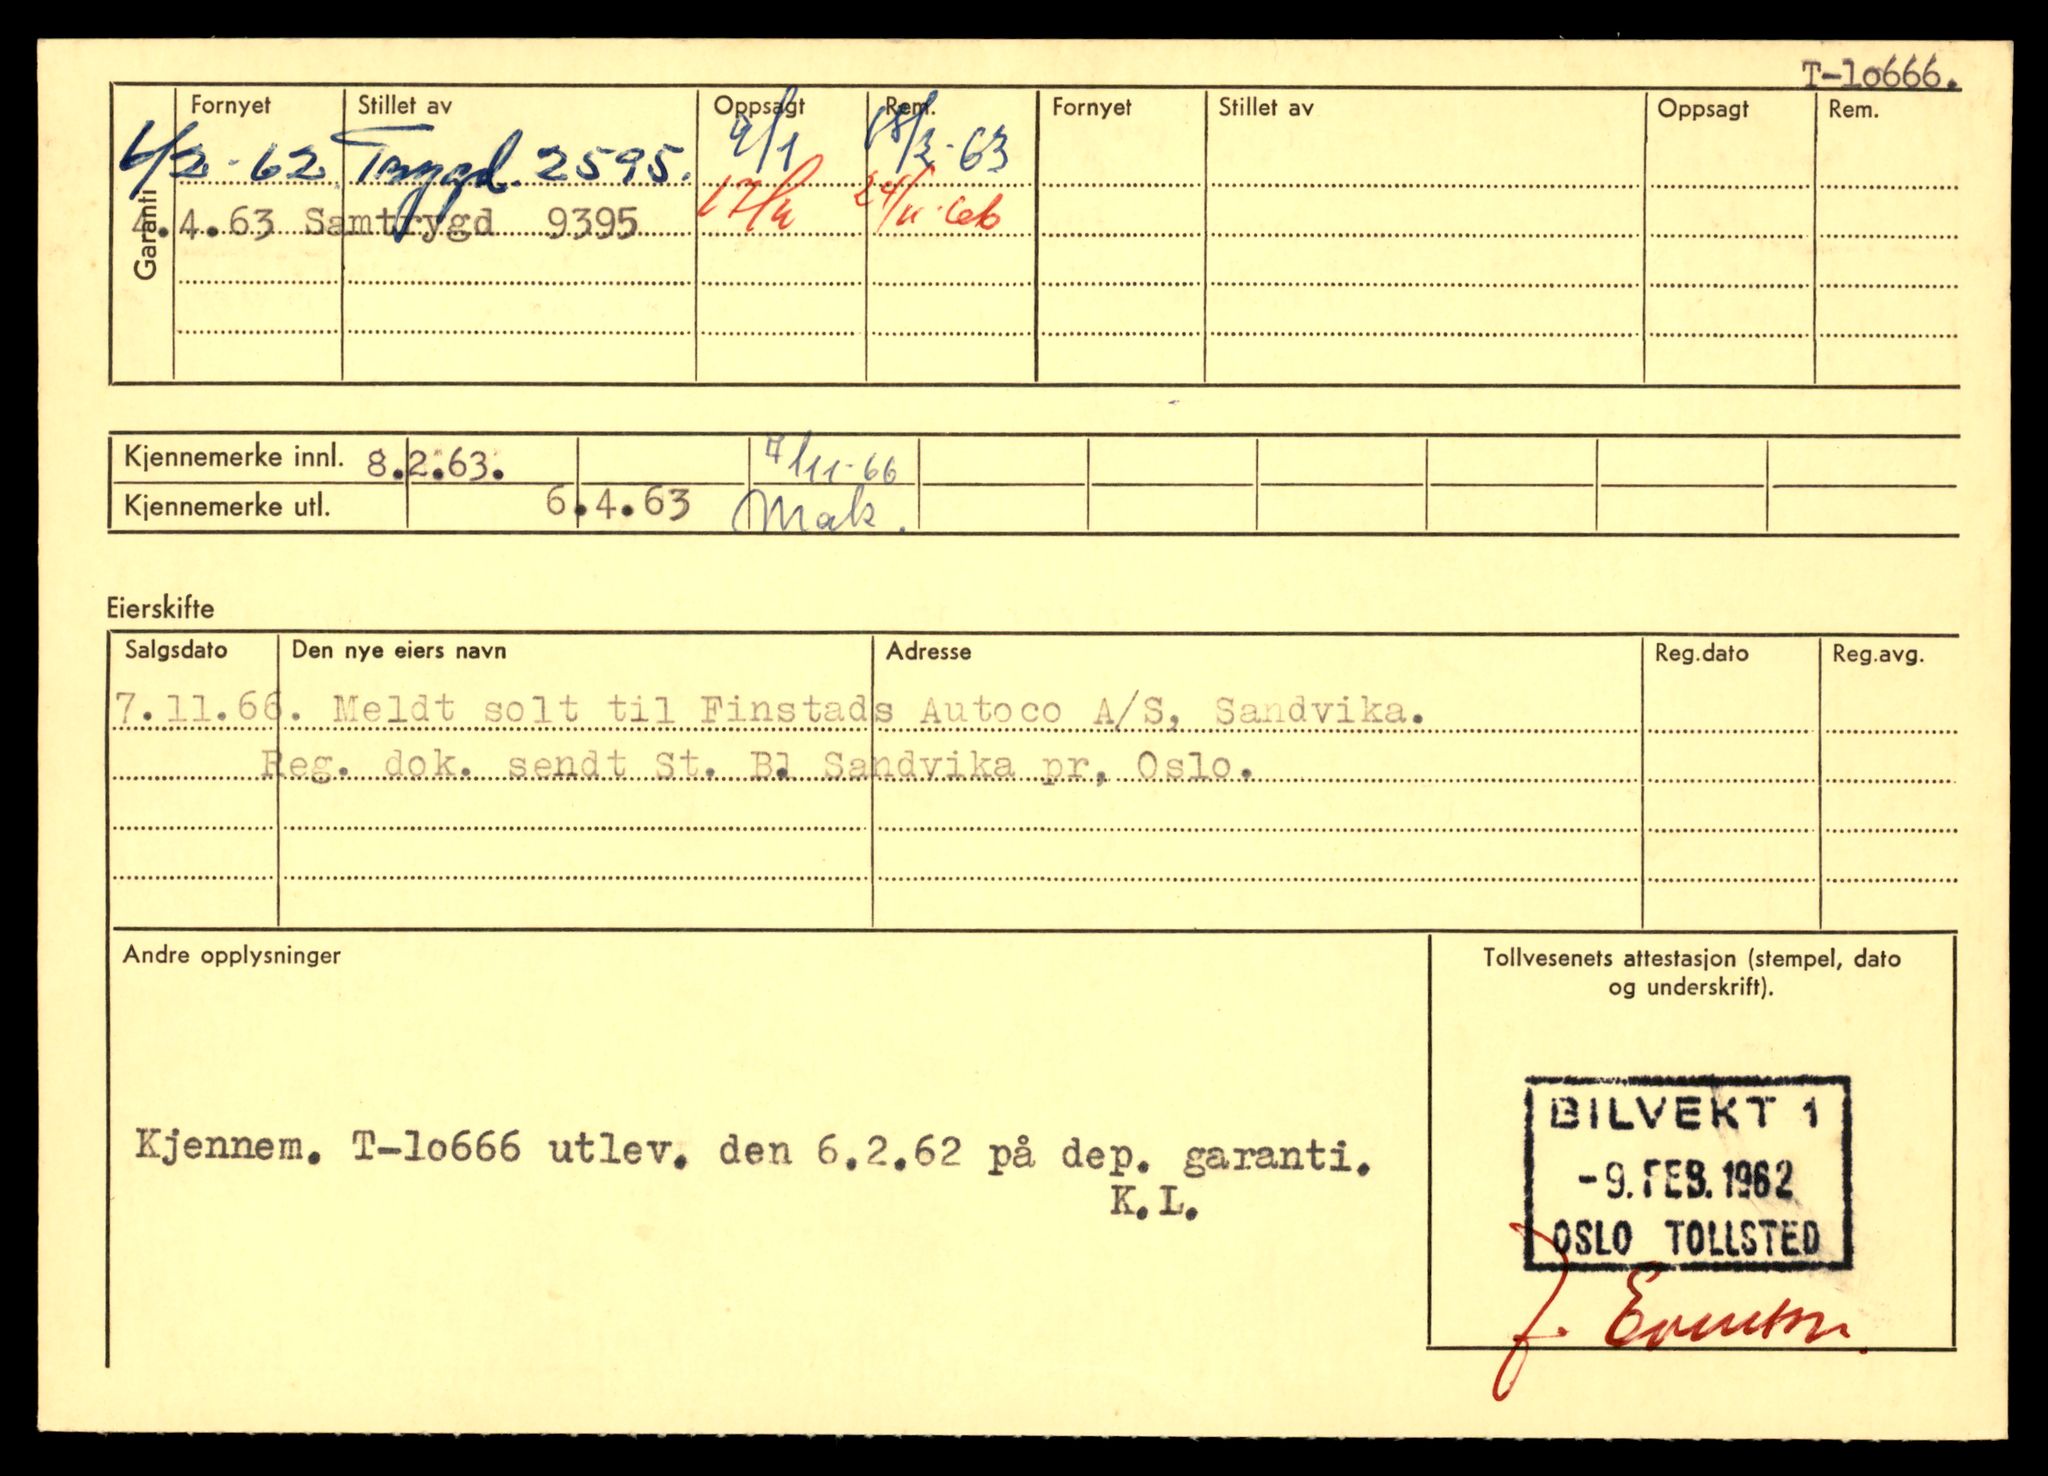 T-lo666.
Garanti
Fornyet Stillet av Oppsagt Rem. Fornyet Stillet av Oppsagt Rem.
6/2-62. Trygd. 2595. 4/1 18/2-63
4.4.63 Samtrygd 9395 17/11 24/11-66
Kjennemerke innl. 8.2.63. 7/11-66
Kjennemerke utl. 6.4.63 Mak.
Eierskifte
Salgsdato Den nye eiers navn Adresse Reg.dato Reg.avg.
7.11.66. Meldt solt til Finstads Autoco A/S, Sandvika.
Reg. dok. sendt St. Bl Sandvika pr, Oslo.
Andre opplysninger
Tollvesenets attestasjon (stempel, dato
og underskrift).
Kjennem. T-lo666 utlev. den 6.2.62 på dep. garanti.
K.L.
BILVEKT 1
-9. FEB. 1962
OSLO TOLLSTED